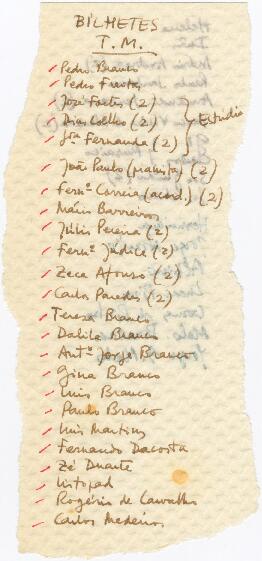 BILHETES
T.M.
Pedro Branco
Pedro Freitas
José Fortes (2)
Dias Coelho (2)
Estúdio
Fernanda (2)
João Paulo (pianista) (2)
Fernº Correia (acord.) (2)
Mário Barreiros
Júlio Pereira (2)
Fernº Júdice (2)
Zeca Afonso (2)
Carlos Paredes (2)
Tereza Branco
Dalila Branco
Antº Jorge Branco
Gina Branco
Luis Branco
Paulo Branco
Luis Martins
Fernando Dacosta
Zé Duarte
Listopad
Rogério de Carvalho
Carlos Medeiros